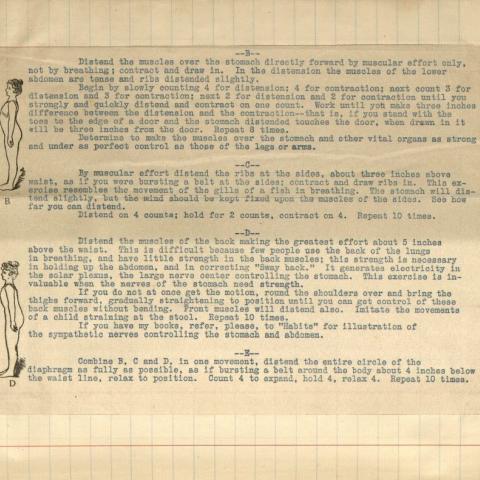 --B--
Distend the muscles over the stomach directly forward by muscular effort only,
not by breathing; contract and draw in. In the distension the muscles of the lower
abdomen are tense and ribs distended slightly.
Begin by slowly counting 4 for distension; 4 for contraction; next count 3 for
distension and 3 for contraction; next 2 for distension and 2 for contraction until you
strongly and quickly distend and contract on one count. Work until you make three inches
difference between the distension and the contraction--that is, if you stand with the
toes to the edge of a door and the stomach distended touches the door, when drawn in it
will be three inches from the door. Repeat 8 times.
Determine to make the muscles over the stomach and other vital organs as strong
and under as perfect control as those of the legs or arms.
--C--
By muscular effort distend the ribs at the sides, about three inches above
waist, as if you were bursting a belt at the sides; contract and draw ribs in. This ex-
ercise resembles the movement of the gills of a fish in breathing. The stomach will dis-
tend slightly, but the mind should be kept fixed upon the muscles of the sides. See how
far you can distend.
Distend on 4 counts; hold for 2 counts, contract on 4. Repeat 10 times.
B
--D--
Distend the muscles of the back making the greatest effort about 5 inches
above the waist. This is difficult because few people use the back of the lungs
in breathing, and have little strength in the back muscles; this strength is necessary
in holding up the abdomen, and in correcting "Sway back." It generates electricity in
the solar plexus, the large nerve center controlling the stomach. This exercise is in-
valuable when the nerves of the stomach need strength.
If you do not at once get the motion, round the shoulders over and bring the
thighs forward, gradually straightening to position until you can get control of these
back muscles without bending. Front muscles will distend also. Imitate the movements
of a child straining at the stool. Repeat 10 times.
If you have my books, refer, please, to "Habits" for illustration of
the sympathetic nerves controlling the stomach and abdomen.
--E--
Combine B, C and D, in one movement, distend the entire circle of the
diaphragm as fully as possible, as if bursting a belt around the body about 4 inches below
the waist line, relax to position. Count 4 to expand, hold 4, relax 4. Repeat 10 times.
D